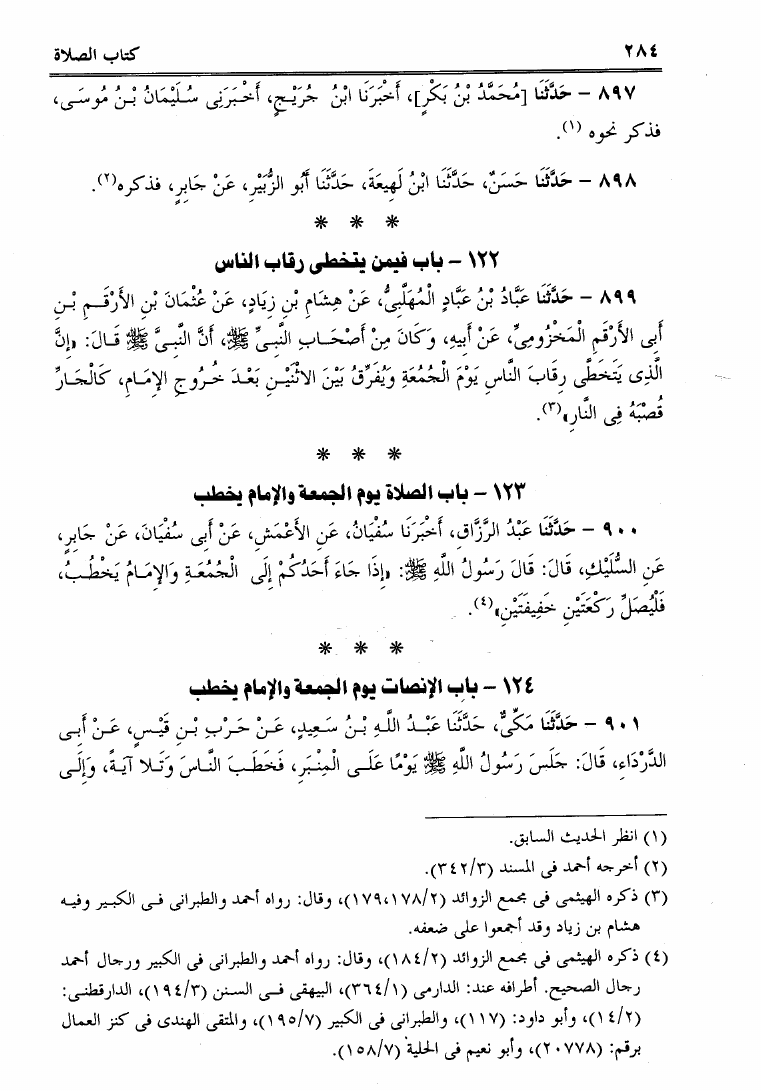 ٢٨٤ كتاب الصلاة
٨٩٧ – حَدَّثَنَا [مُحَمَّدُ بْنُ بَكْرٍ]، أَخْبَرَنَا ابْنُ جُرَيْجٍ، أَخْبَرَنِى سُلَيْمَانُ بْنُ مُوسَى،
فذكر نحوه (١).
٨٩٨ – حَدَّثَنَا حَسَنٌ، حَدَّثَنَا ابْنُ لَهِيعَةَ، حَدَّثَنَا أَبُو الزُّبَيْرِ، عَنْ جَابِرٍ، فذكره(٢).
* * *
١٢٢ – باب فيمن يتخطى رقاب الناس
٨٩٩ – حَدَّثَنَا عَبَّادُ بْنُ عَبَّادٍ الْمُهَلَّبِىُّ، عَنْ هِشَامِ بْنِ زِيَادٍ، عَنْ عُثْمَانَ بْنِ الأَرْقَمِ بْنِ
أَبِى الأَرْقَمِ الْمَخْزُومِىِّ، عَنْ أَبِيهِ، وَكَانَ مِنْ أَصْحَابِ النَّبِىِّ ﷺ، أَنَّ النَّبِىَّ ﷺ قَالَ: «إِنَّ
الَّذِى يَتَخَطَّى رِقَابَ النَّاسِ يَوْمَ الْجُمُعَةِ وَيُفَرِّقُ بَيْنَ الاثْنَيْنِ بَعْدَ خُرُوجِ الإِمَامِ، كَالْجَارِّ
قُصْبَهُ فِى النَّارِ»(٣).
* * *
١٢٣ – باب الصلاة يوم الجمعة والإمام يخطب
٩٠٠ – حَدَّثَنَا عَبْدُ الرَّزَّاقِ، أَخْبَرَنَا سُفْيَانُ، عَنِ الأَعْمَشِ، عَنْ أَبِى سُفْيَانَ، عَنْ جَابِرٍ،
عَنِ السُّلَيْكِ، قَالَ: قَالَ رَسُولُ اللَّهِ ﷺ: «إِذَا جَاءَ أَحَدُكُمْ إِلَى الْجُمُعَةِ وَالإِمَامُ يَخْطُبُ،
فَلْيُصَلِّ رَكْعَتَيْنِ خَفِيفَتَيْنِ»(٤).
* * *
١٢٤ – باب الإنصات يوم الجمعة والإمام يخطب
٩٠١ – حَدَّثَنَا مَكِّىٌّ، حَدَّثَنَا عَبْدُ اللَّهِ بْنُ سَعِيدٍ، عَنْ حَرْبِ بْنِ قَيْسٍ، عَنْ أَبِى
الدَّرْدَاءِ، قَالَ: جَلَسَ رَسُولُ اللَّهِ ﷺ يَوْمًا عَلَى الْمِنْبَرِ، فَخَطَبَ النَّاسَ وَتَلا آيَةً، وَإِلَى
(١) انظر الحديث السابق.
(٢) أخرجه أحمد فى المسند (٣٤٢/٣).
(٣) ذكره الهيثمى فى مجمع الزوائد (١٧٩،١٧٨/٢)، وقال: رواه أحمد والطبرانى فى الكبير وفيه
هشام بن زياد وقد أجمعوا على ضعفه.
(٤) ذكره الهيثمى فى مجمع الزوائد (١٨٤/٢)، وقال: رواه أحمد والطبرانى فى الكبير ورجال أحمد
رجال الصحيح. أطرافه عند: الدارمى (٣٦٤/١)، البيهقى فى السنن (١٩٤/٣)، الدارقطنى:
(١٤/٢)، وأبو داود: (١١٧)، والطبرانى فى الكبير (١٩٥/٧)، والمتقى الهندى فى كنز العمال
برقم: (٢٠٧٧٨)، وأبو نعيم فى الحلية (١٥٨/٧).